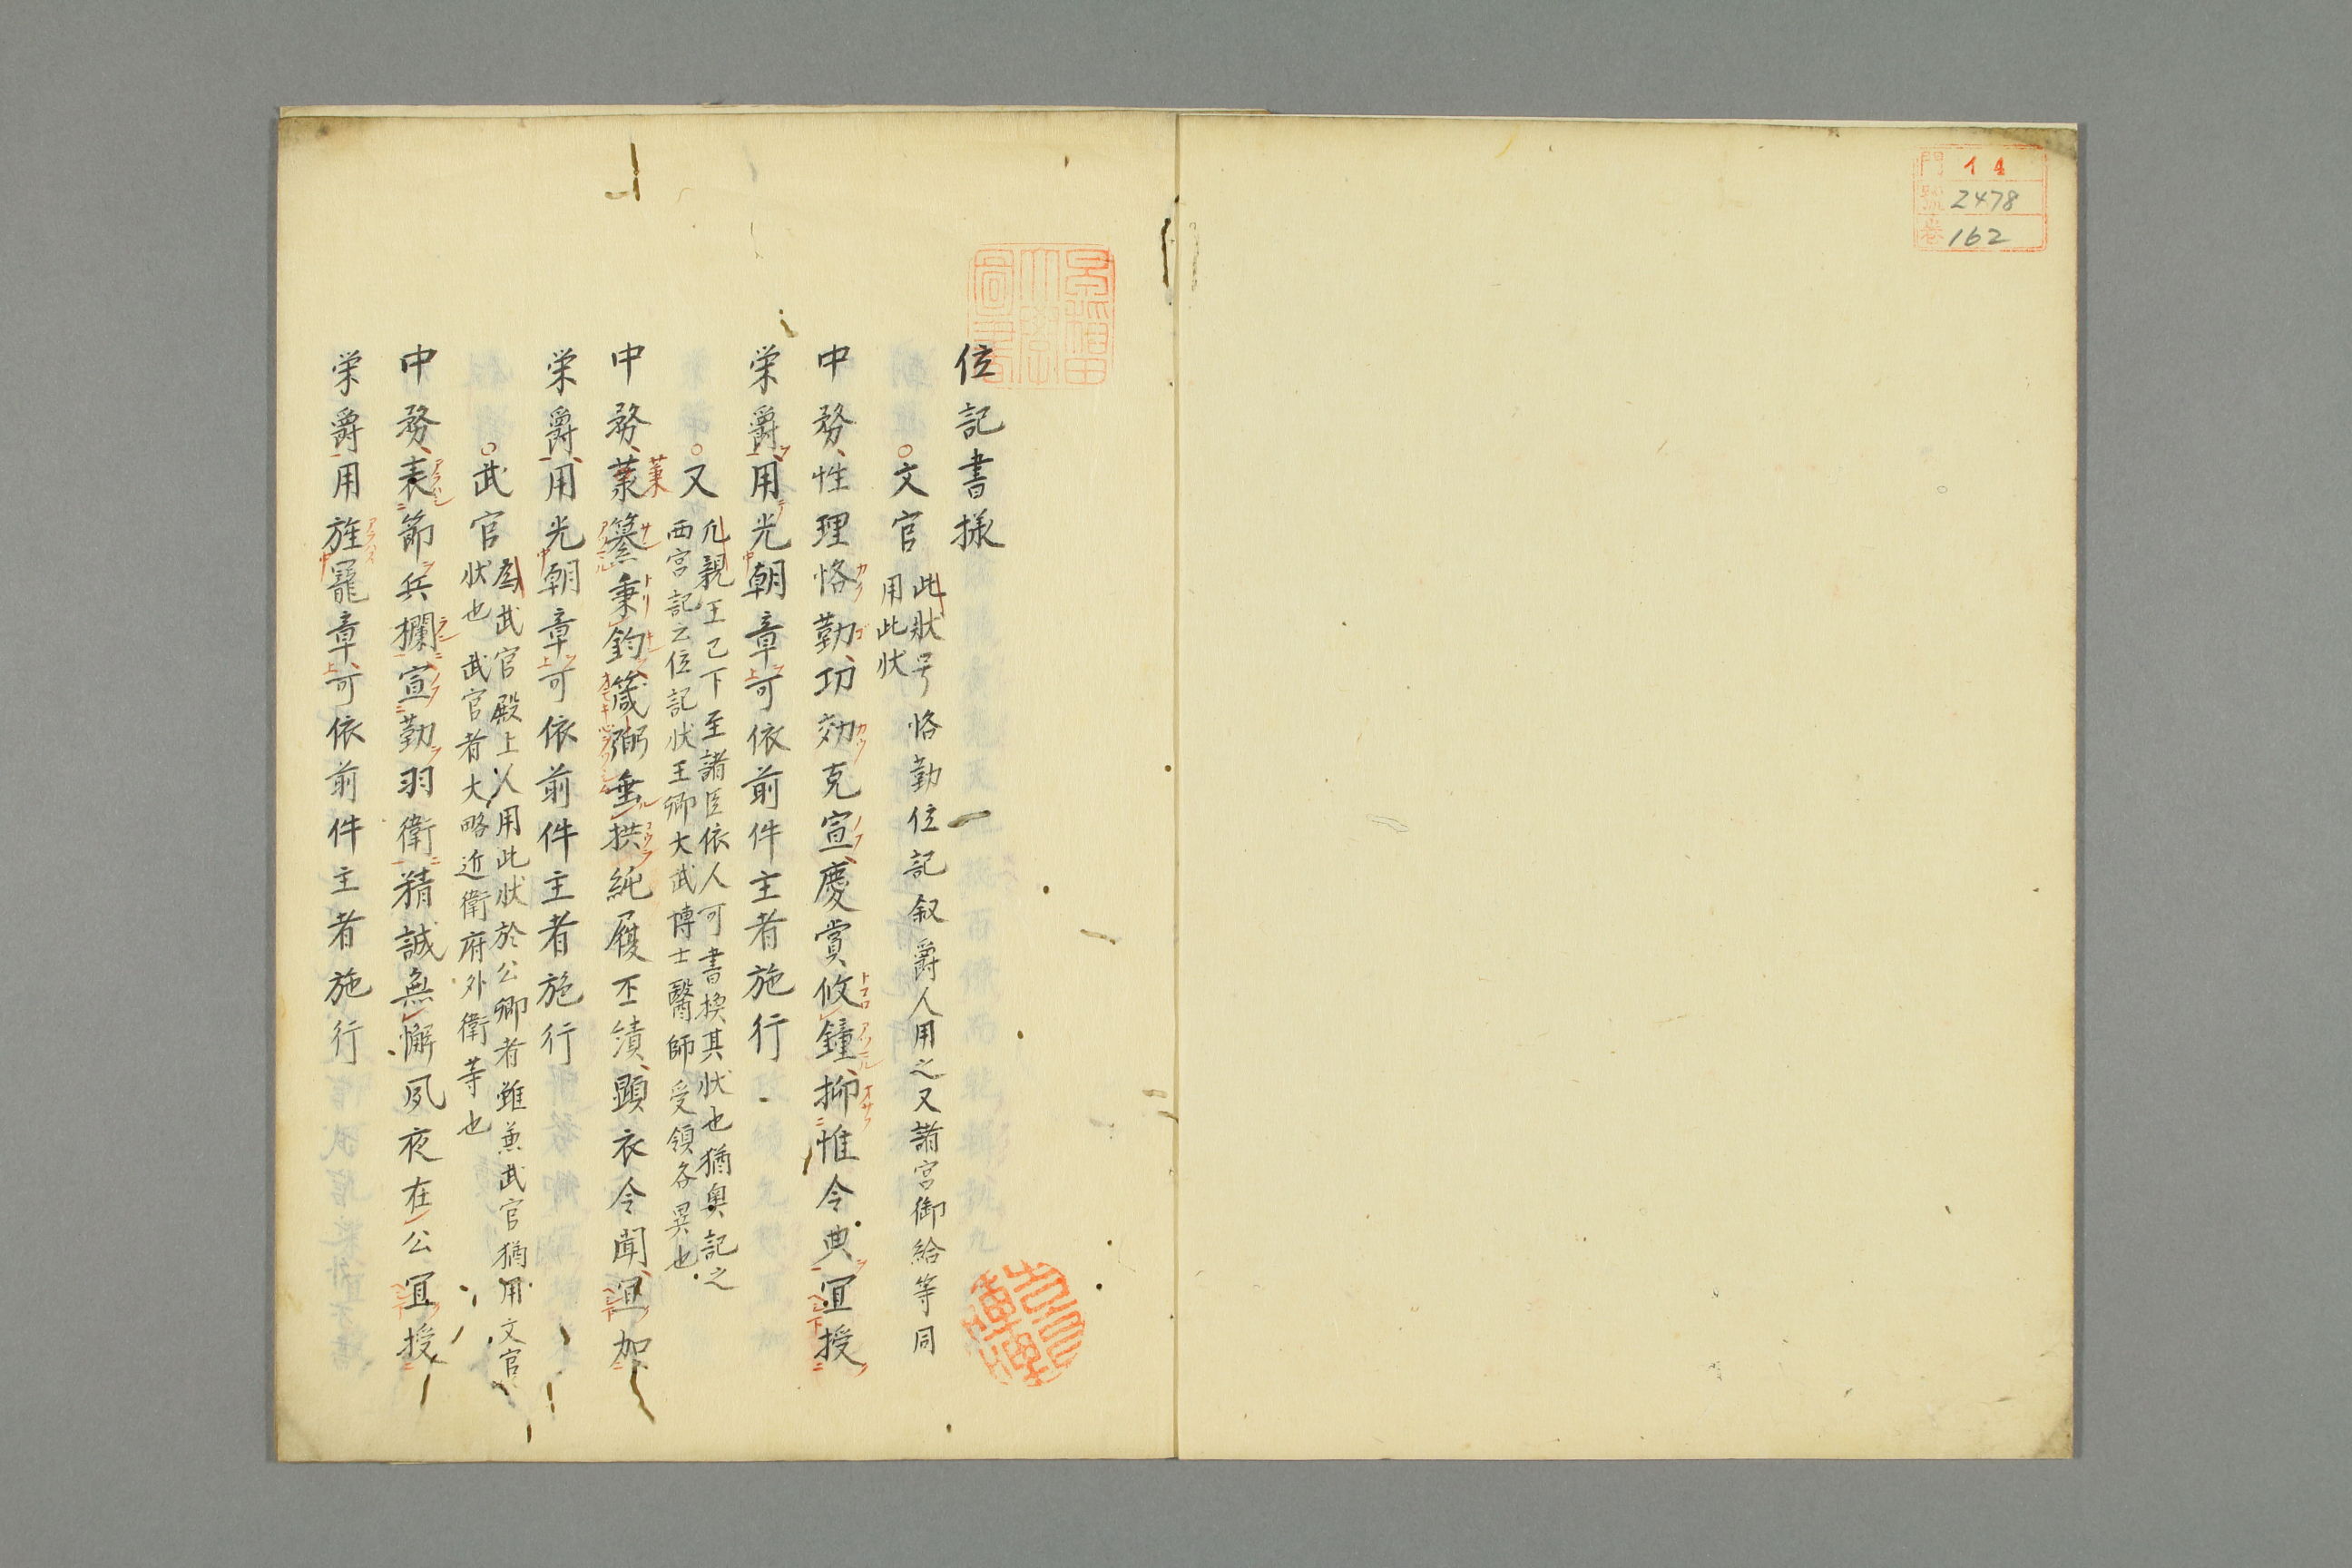 門 イ4
號 2478
卷 162
早稲田大學圖書
位記書様
文官 此状号恪勤位記叙爵人用之又諸宮御給等同
用此状
中務性理恪勤功効克宣慶賞攸鐘抑惟令典宜授
栄爵用光朝章可依前件主者施行
又 凢親王已下至諸臣依人可書換其状也猶奥記之
西宮記云位記状王卿大武博士醫師受領各異也
中務纂秉鈞箴弼垂拱純履丕績顕衣令聞宜加
栄爵用光朝章可依前件主者施行
武官 武官殿上人用此状於公卿者雖兼武官猶用文官
状也 武官者大略近衛府外衛等也
中務表節兵欄宣勤羽衛精誠無懈夙夜在公宜授
栄爵用旌寵章可依前件主者施行